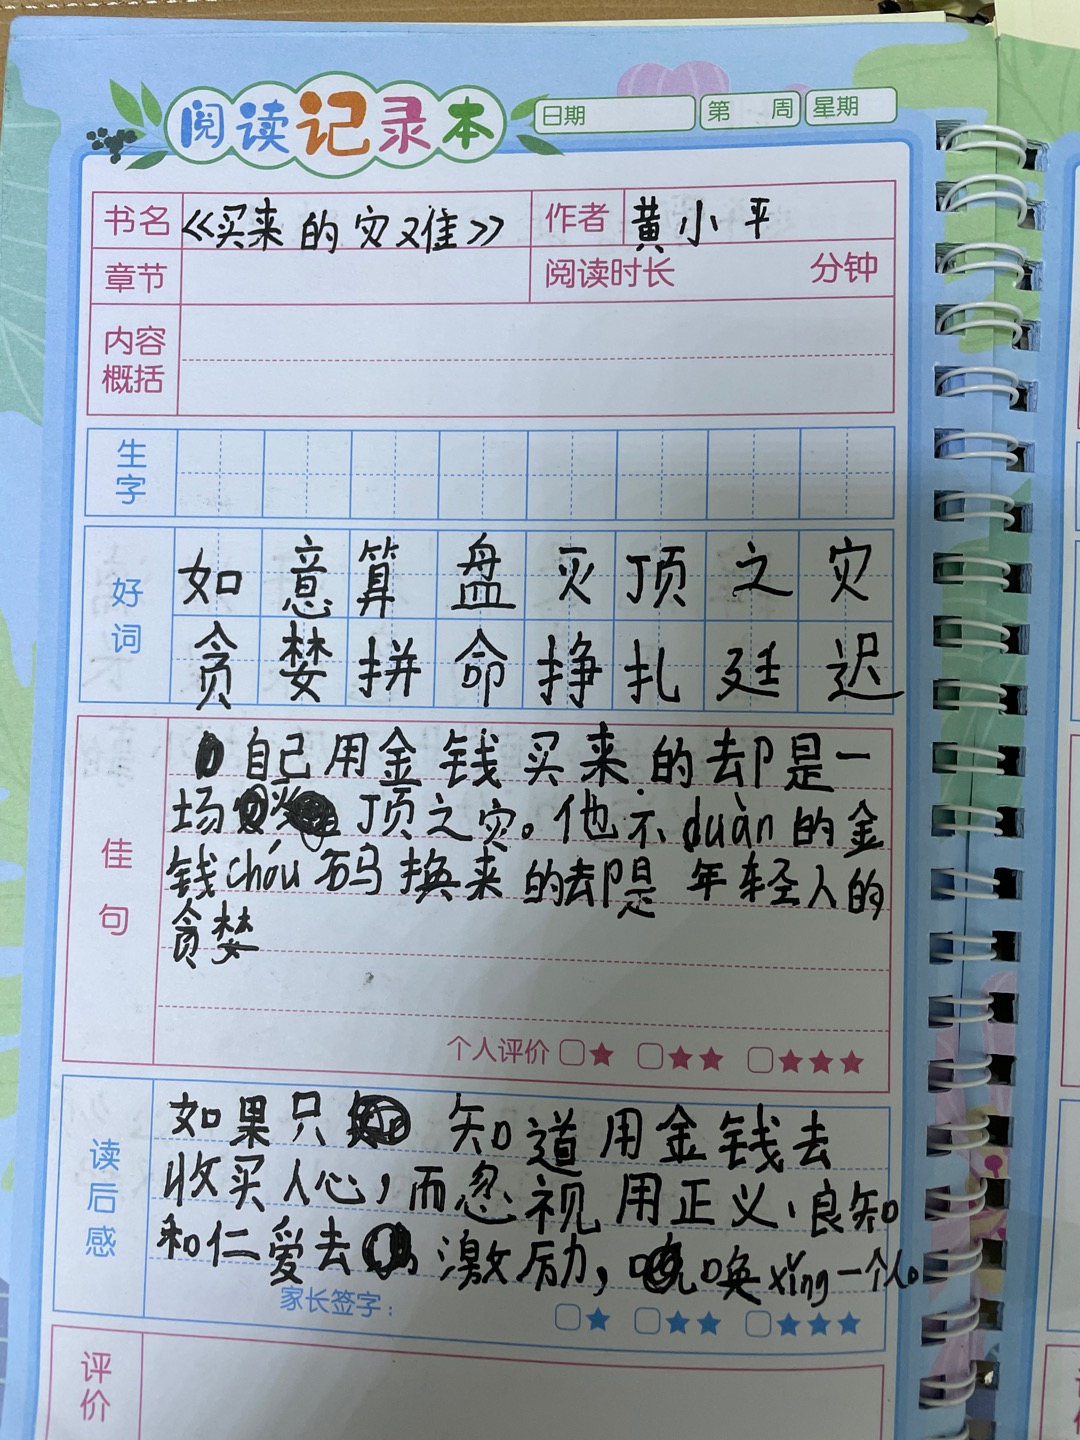 阅读记录本 日期 第 周 星期
书名 《买来的灾难》 作者 黄小平
章节 阅读时长 分钟
内容
概括
生
字
好
词
如意算盘灭顶之灾
贪婪拼命挣扎延迟
佳
句
自己用金钱买来的却是一
场灭顶之灾。他不duàn的金
钱chóu码换来的却是年轻人的
贪婪
个人评价 ★ ★★ ★★★
读
后
感
如果只知道用金钱去
收买人心，而忽视用正义、良知
和仁爱去激励，唤xǐng一个人。
家长签字： ★ ★★ ★★★
评
价